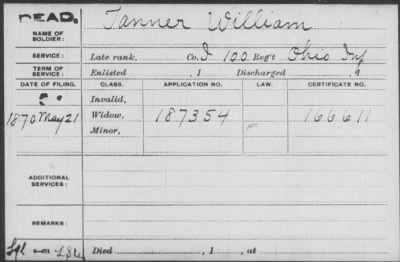 DEAD.
NAME OF SOLDIER: Tanner William
SERVICE: Late rank, Co. I 100 Reg't Ohio Inf
TERM OF SERVICE: Enlisted , 1 Discharged , 1
DATE OF FILING. CLASS. APPLICATION NO. LAW. CERTIFICATE NO.
Invalid,
1870 May 21 Widow, 187354 166611
Minor,
ADDITIONAL SERVICES:
REMARKS:
Died , 1 , at